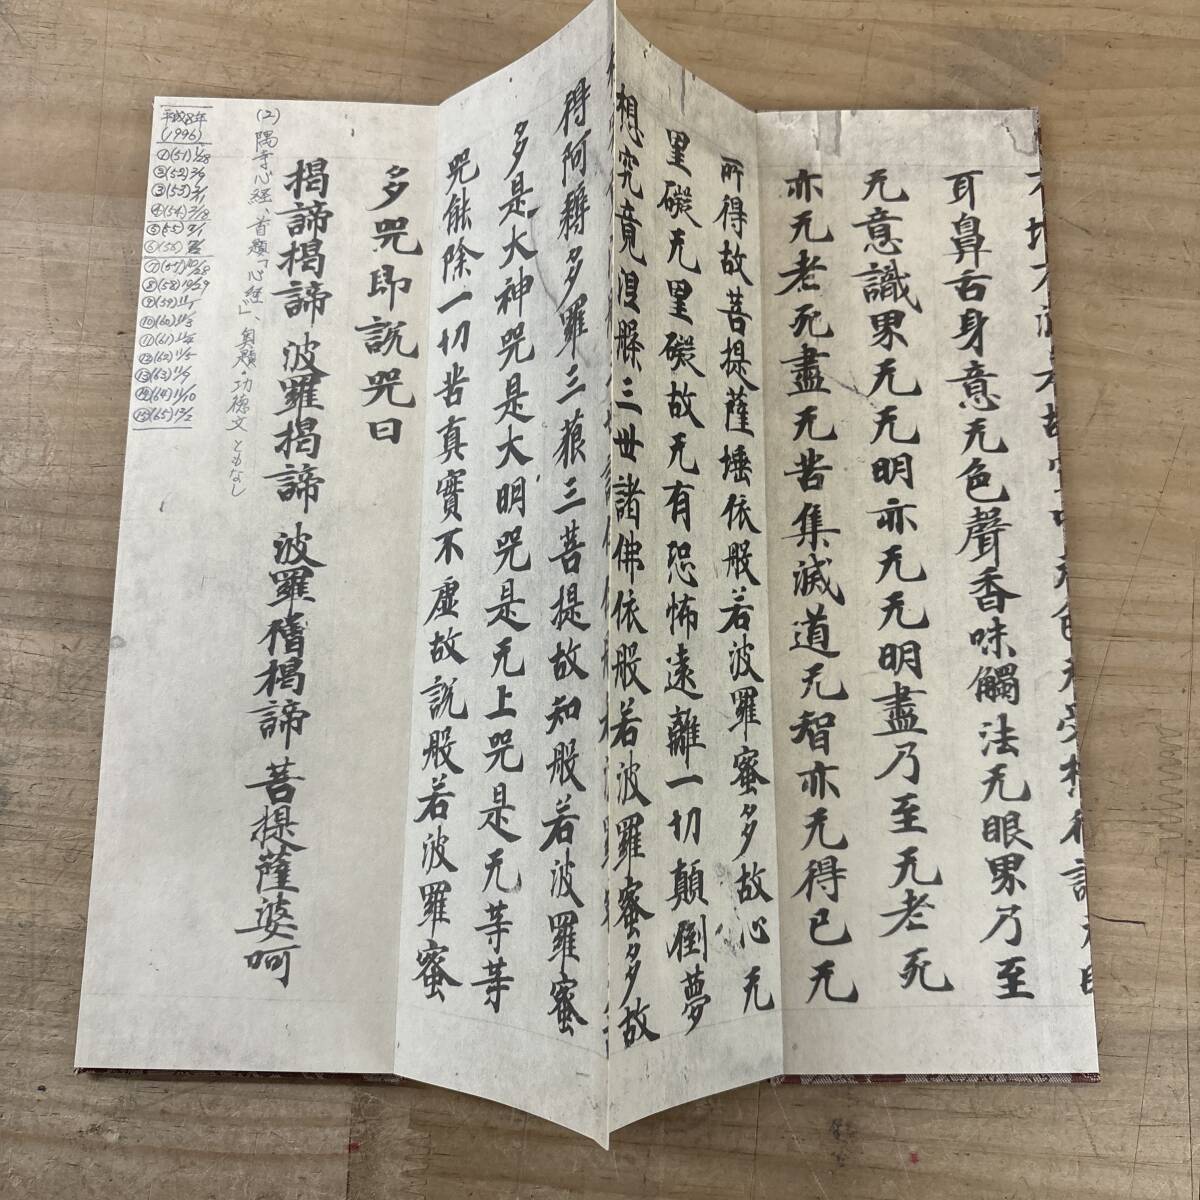 耳鼻舌身意无色聲香味觸法无眼界乃至
无意識界无无明亦无无明盡乃至无老死
亦无老死盡无苦集滅道无智亦无得已无
所得故菩提薩埵依般若波羅蜜多故心无
罣礙无罣礙故无有恐怖遠離一切顛倒夢
想究竟涅槃三世諸佛依般若波羅蜜多故
得阿耨多羅三藐三菩提故知般若波羅蜜
多是大神咒是大明咒是无上咒是无等等
咒能除一切苦真實不虚故説般若波羅蜜
多咒即説咒曰
揭諦揭諦 波羅揭諦 波羅僧揭諦 菩提薩婆呵
(2) 隅寺心経、首題「心経」、奥題・功徳文ともなし
(1996)
①(51)
②(52)
③(53)
④(54)
⑤(55)
⑥(56)
⑦(57)
⑧(58) 10/29
⑨(59)
⑩(60) 11/3
⑪(61)
⑫(62) 11/5
⑬(63) 11/9
⑭(64) 11/10
⑮(65) 12/2